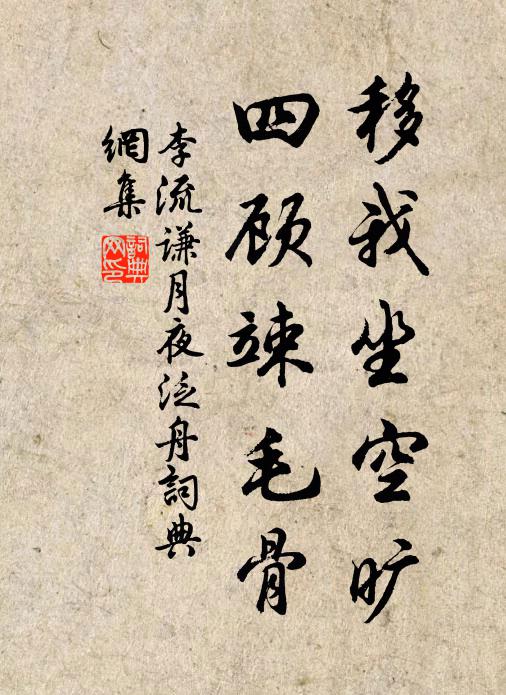 移我坐空旷
四顾竦毛骨
李流谦月夜泛舟詞典
網集
詞典
网印